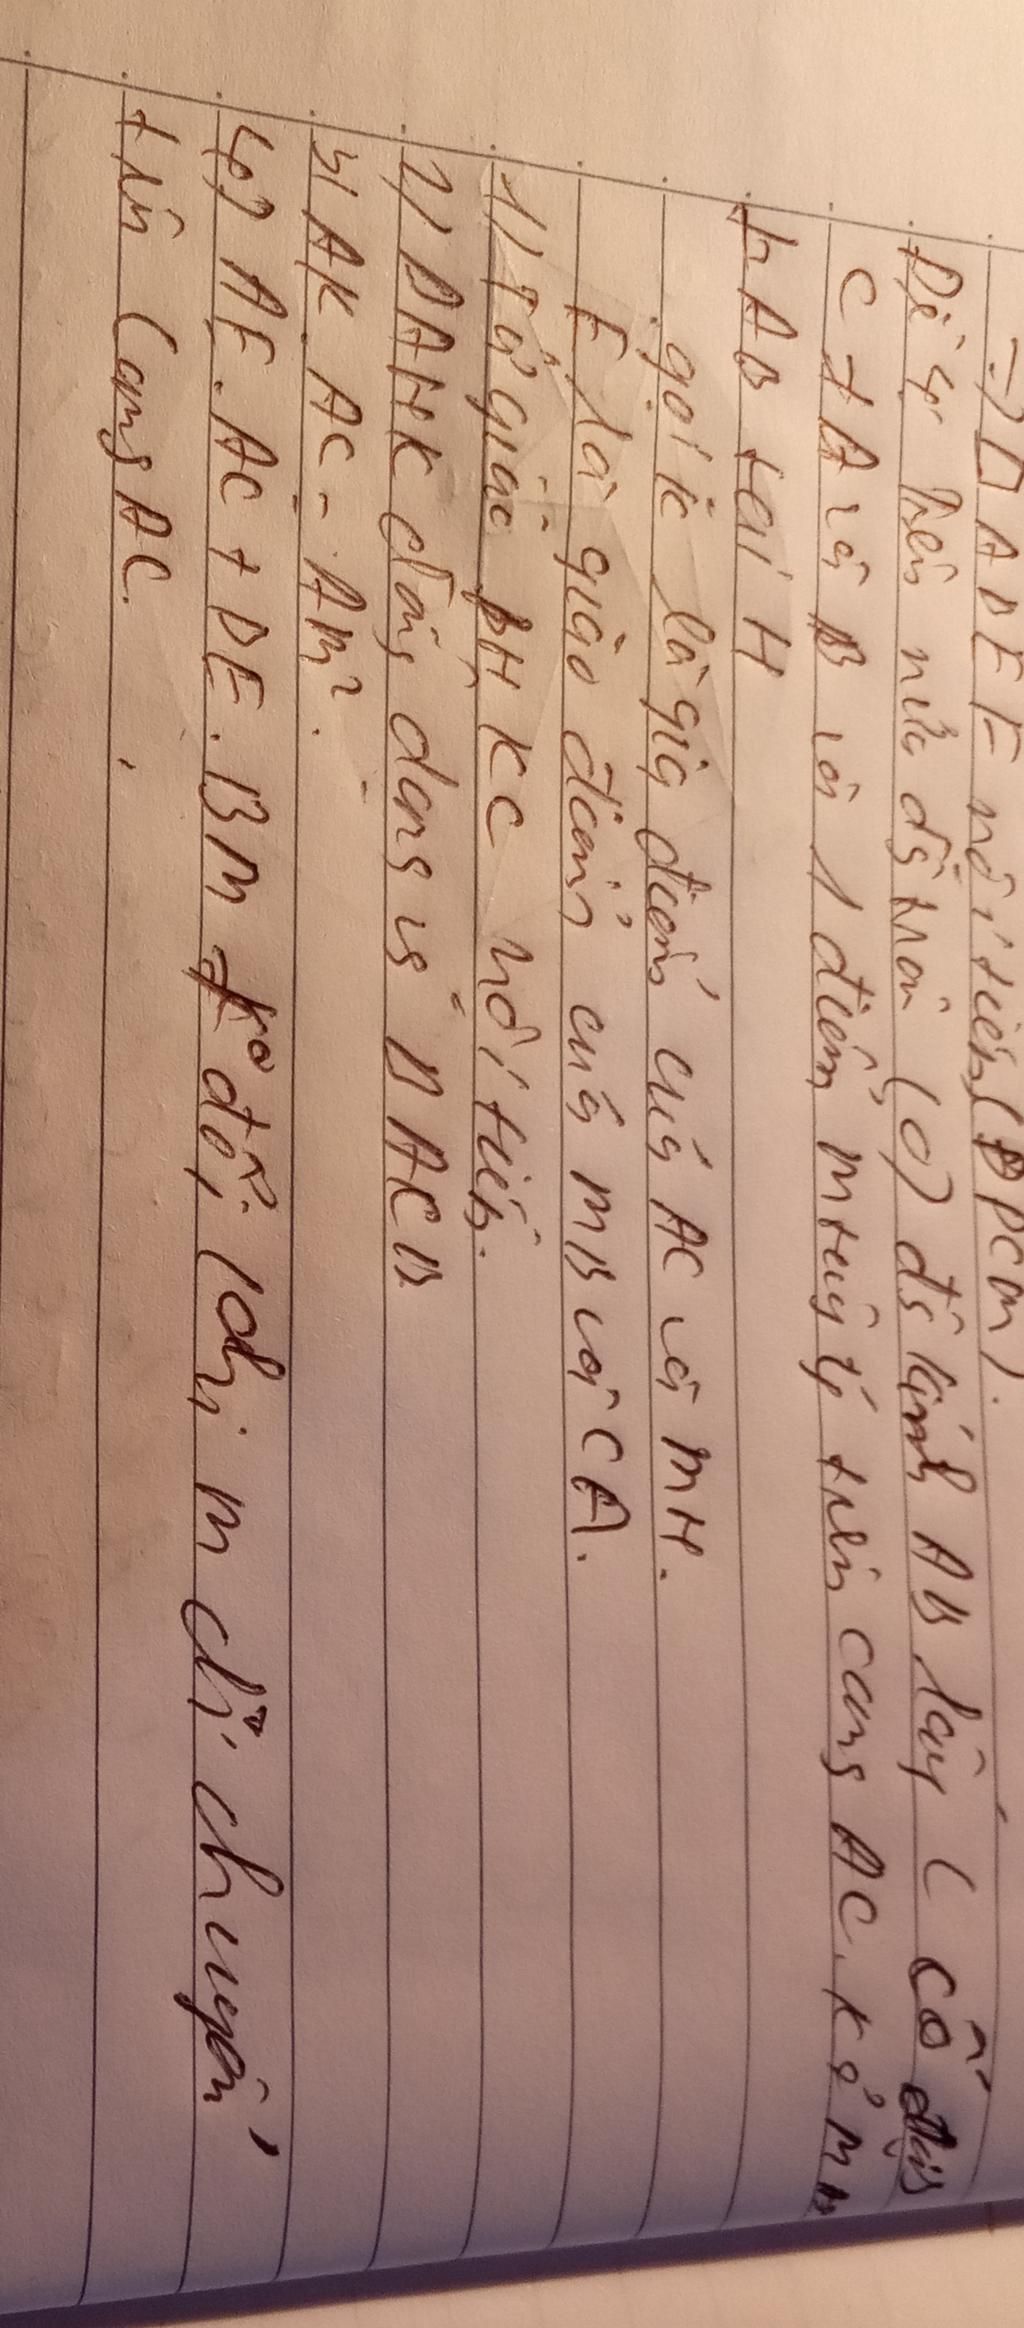 => □ ADEF nội tiếp (Đpcm).
Đề 4: trên nửa đg tròn (O) đg kính AB lấy C cố định
C ≠ A và B và 1 điểm M tuỳ ý trên cung AC. kẻ MH
⊥ AB tại H
gọi K là giao điểm của AC và MH.
E là giao điểm của MB và CA.
1) Tứ giác BHKC nội tiếp.
2) ΔAHK đồng dạng vs ΔACB
3) AK.AC = AM².
4) AE.AC + BE.BM ko đổi khi M di chuyển
trên cung AC.